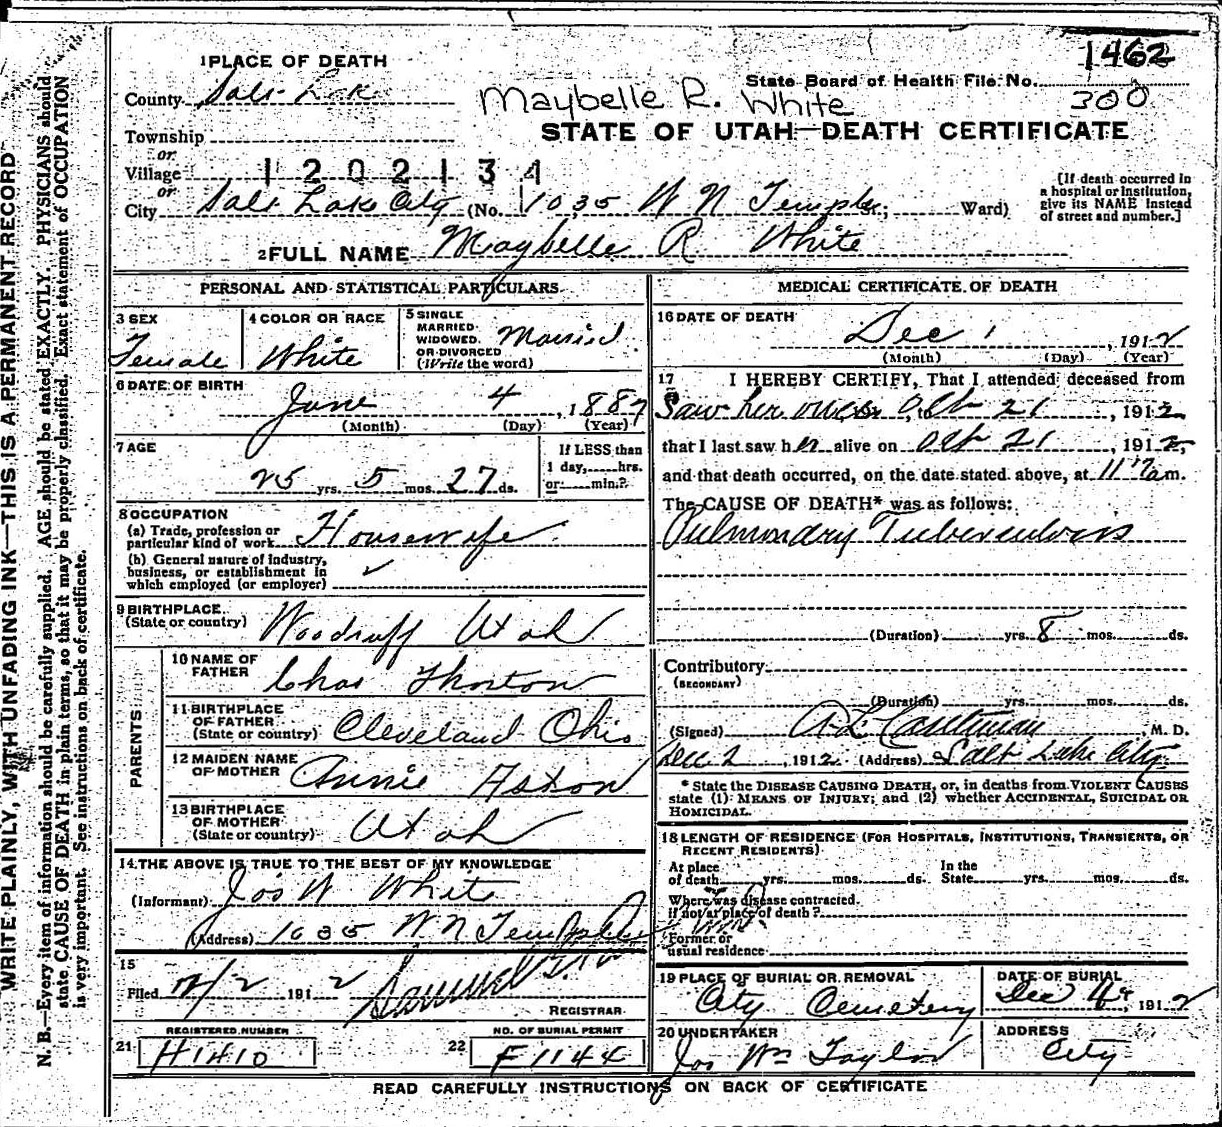 1462
1 PLACE OF DEATH
State Board of Health File No.
300
County Salt Lake
Maybelle R. White
STATE OF UTAH—DEATH CERTIFICATE
Township
or
Village
1202134
or
City Salt Lake City (No. 1035 W N Temple St.; Ward)
[If death occurred in
a hospital or institution,
give its NAME instead
of street and number.]
2 FULL NAME Maybelle R White
PERSONAL AND STATISTICAL PARTICULARS
3 SEX
Female
4 COLOR OR RACE
White
5 SINGLE
MARRIED
WIDOWED
OR DIVORCED
(Write the word)
Married
6 DATE OF BIRTH
June 4, 1887
(Month) (Day) (Year)
7 AGE
25 yrs. 5 mos. 27 ds.
If LESS than
1 day,......hrs.
or......min.?
8 OCCUPATION
(a) Trade, profession or
particular kind of work Housewife
(b) General nature of industry,
business, or establishment in
which employed (or employer)
9 BIRTHPLACE
(State or country) Woodruff Utah
PARENTS
10 NAME OF
FATHER Chas Thorton
11 BIRTHPLACE
OF FATHER
(State or country) Cleveland Ohio
12 MAIDEN NAME
OF MOTHER Annie Aston
13 BIRTHPLACE
OF MOTHER
(State or country) Utah
14 THE ABOVE IS TRUE TO THE BEST OF MY KNOWLEDGE
(Informant) Jos W White
(Address) 1035 W N Temple
15
Filed 12/2 1912 Samuel G.
REGISTRAR
REGISTERED NUMBER
21 H1410
NO. OF BURIAL PERMIT
22 F1144
MEDICAL CERTIFICATE OF DEATH
16 DATE OF DEATH
Dec 1, 1912
(Month) (Day) (Year)
17 I HEREBY CERTIFY, That I attended deceased from
Saw her Oct 21, 1912
that I last saw her alive on Oct 21, 1912,
and that death occurred, on the date stated above, at 11 am.
The CAUSE OF DEATH* was as follows:
Pulmonary Tuberculosis
(Duration) yrs. 8 mos. ds.
Contributory
(SECONDARY)
(Duration) yrs. mos. ds.
(Signed) M. D.
Dec 2, 1912 (Address) Salt Lake City
* State the DISEASE CAUSING DEATH, or, in deaths from VIOLENT CAUSES
state (1) MEANS OF INJURY; and (2) whether ACCIDENTAL, SUICIDAL OR
HOMICIDAL.
18 LENGTH OF RESIDENCE (FOR HOSPITALS, INSTITUTIONS, TRANSIENTS, OR
RECENT RESIDENTS)
At place
of death yrs. mos. ds.
In the
State yrs. mos. ds.
Where was disease contracted.
if not at place of death?
Former or
usual residence
19 PLACE OF BURIAL OR REMOVAL
City Cemetery
DATE OF BURIAL
Dec 4th, 1912
20 UNDERTAKER
Jos Wm Taylor
ADDRESS
City
READ CAREFULLY INSTRUCTIONS ON BACK OF CERTIFICATE
WRITE PLAINLY, WITH UNFADING INK—THIS IS A PERMANENT RECORD
N. B.—Every item of information should be carefully supplied. AGE should be stated EXACTLY. PHYSICIANS should
state CAUSE OF DEATH in plain terms, so that it may be properly classified. Exact statement of OCCUPATION
is very important. See instructions on back of certificate.